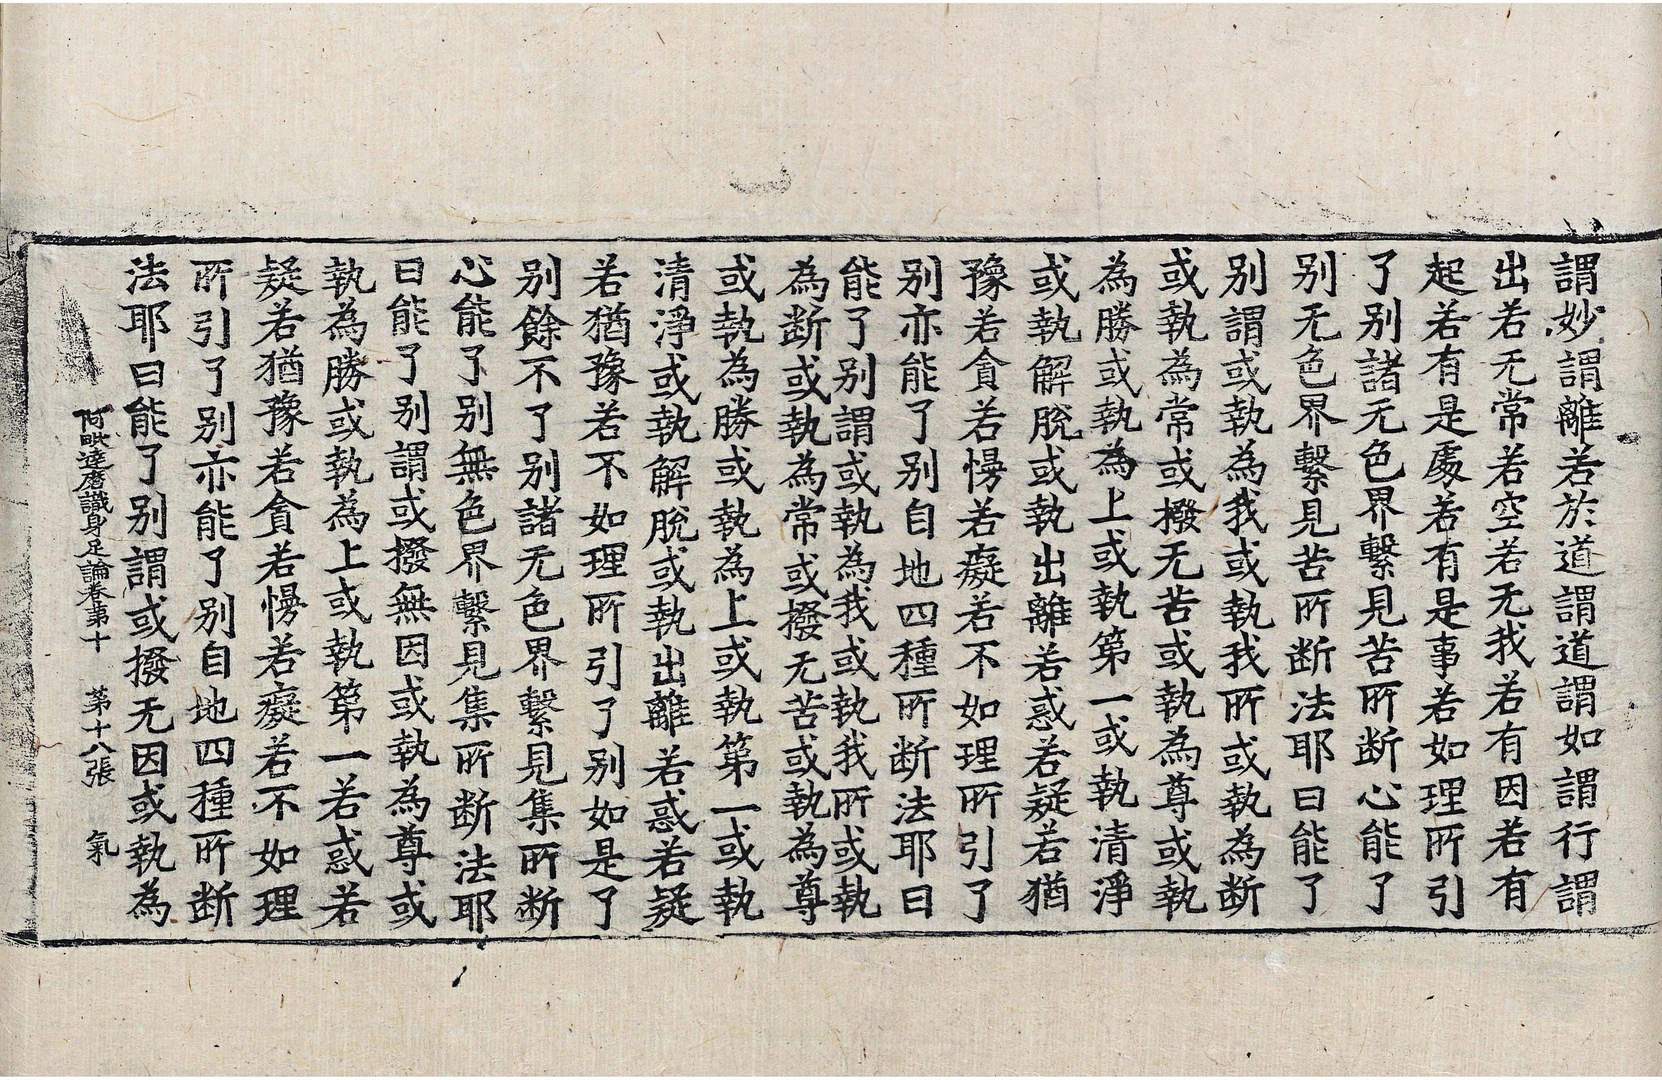 謂妙謂離若於道謂道謂如謂行謂
出若无常若空若无我若有因若有
起若有是處若有是事若如理所引
了别諸无色界繫見苦所断心能了
别无色界繫見苦所断法耶曰能了
别謂或執為我或執我所或執為断
或執為常或撥无苦或執為尊或執
為勝或執為上或執第一或執清淨
或執解脫或執出離若惑若疑若猶
豫若貪若慢若癡若不如理所引了
别亦能了别自地四種所断法耶曰
能了别謂或執為我或執我所或執
為断或執為常或撥无苦或執為尊
或執為勝或執為上或執第一或執
清淨或執解脫或執出離若惑若疑
若猶豫若不如理所引了别如是了
别餘不了别諸无色界繫見集所断
心能了别無色界繫見集所断法耶
曰能了别謂或撥無因或執為尊或
執為勝或執為上或執第一若惑若
疑若猶豫若貪若慢若癡若不如理
所引了别亦能了别自地四種所断
法耶曰能了别謂或撥无因或執為
阿毗達磨識身足論卷苐十 苐十八張 氣